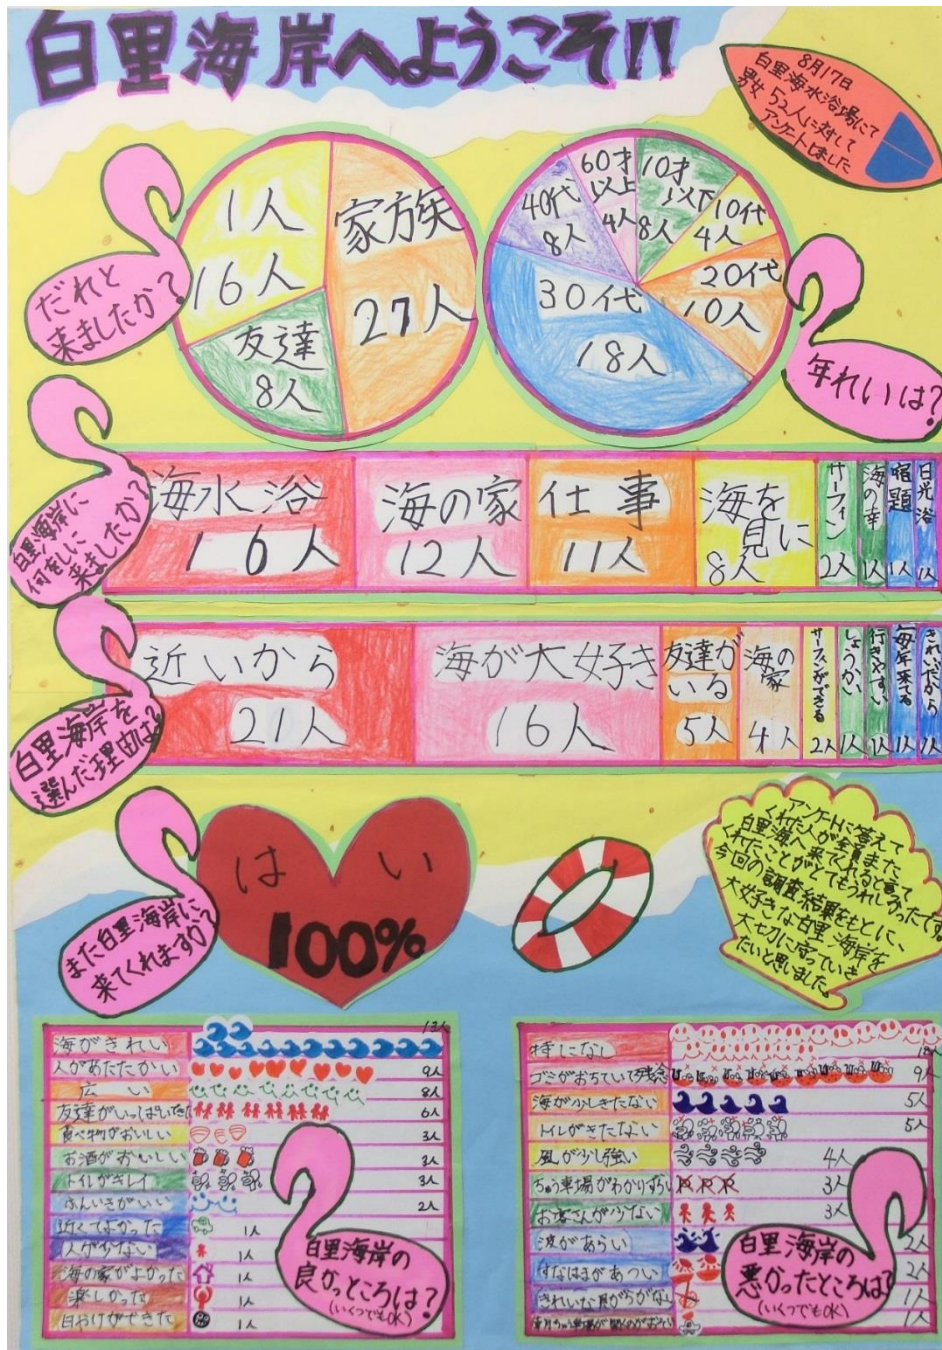 白里海岸へようこそ!!
8月17日
白里海水浴場にて
男女52人に対して
アンケートしました
だれと
来ましたか?
1人
16人
家族
27人
友達
8人
年れいは?
60才
以上
4人
10才
以下
8人
10代
4人
20代
10人
30代
18人
40代
8人
白里海岸に
何をしに
来ましたか?
海水浴
16人
海の家
12人
仕事
11人
海を
見に
8人
サーフィン
2人
海の幸
1人
宿題
1人
日光浴
1人
白里海岸を
選んだ理由は?
近いから
21人
海が大好き
16人
友達が
いる
5人
海の
家
4人
サーフィンができる
2人
しょうかい
1人
行きやすい
1人
毎年来てる
1人
きれいだから
1人
また白里海岸に
来てくれますか?
はい
100%
アンケートに答えて
くれた人が全員また
白里海へ来てくれると言て
くれたことがとてもうれしかったです。
今回の調査結果をもとに、
大好きな白里海岸を
大切に守っていき
たいと思いました。
白里海岸の
良かったところは?
(いくつでもOK)
海がきれい
人があたたかい 9人
広い 8人
友達がいっぱいできた 6人
食べ物がおいしい 3人
お酒がおいしい 3人
トイレがキレイ 3人
ふんいきがいい 2人
近くてよかった 1人
人が少ない 1人
海の家がよかった 1人
楽しかった 1人
日やけができた 1人
白里海岸の
悪かったところは?
(いくつでもOK)
特になし
ゴミがおちていて残念 9人
海が少しきたない 5人
トイレがきたない 5人
風が少し強い 4人
ちゅう車場がわかりずらい 3人
お客さんが少ない 3人
波があらい 2人
すなはまがあつい 2人
きれいな貝がらがない 1人
1人